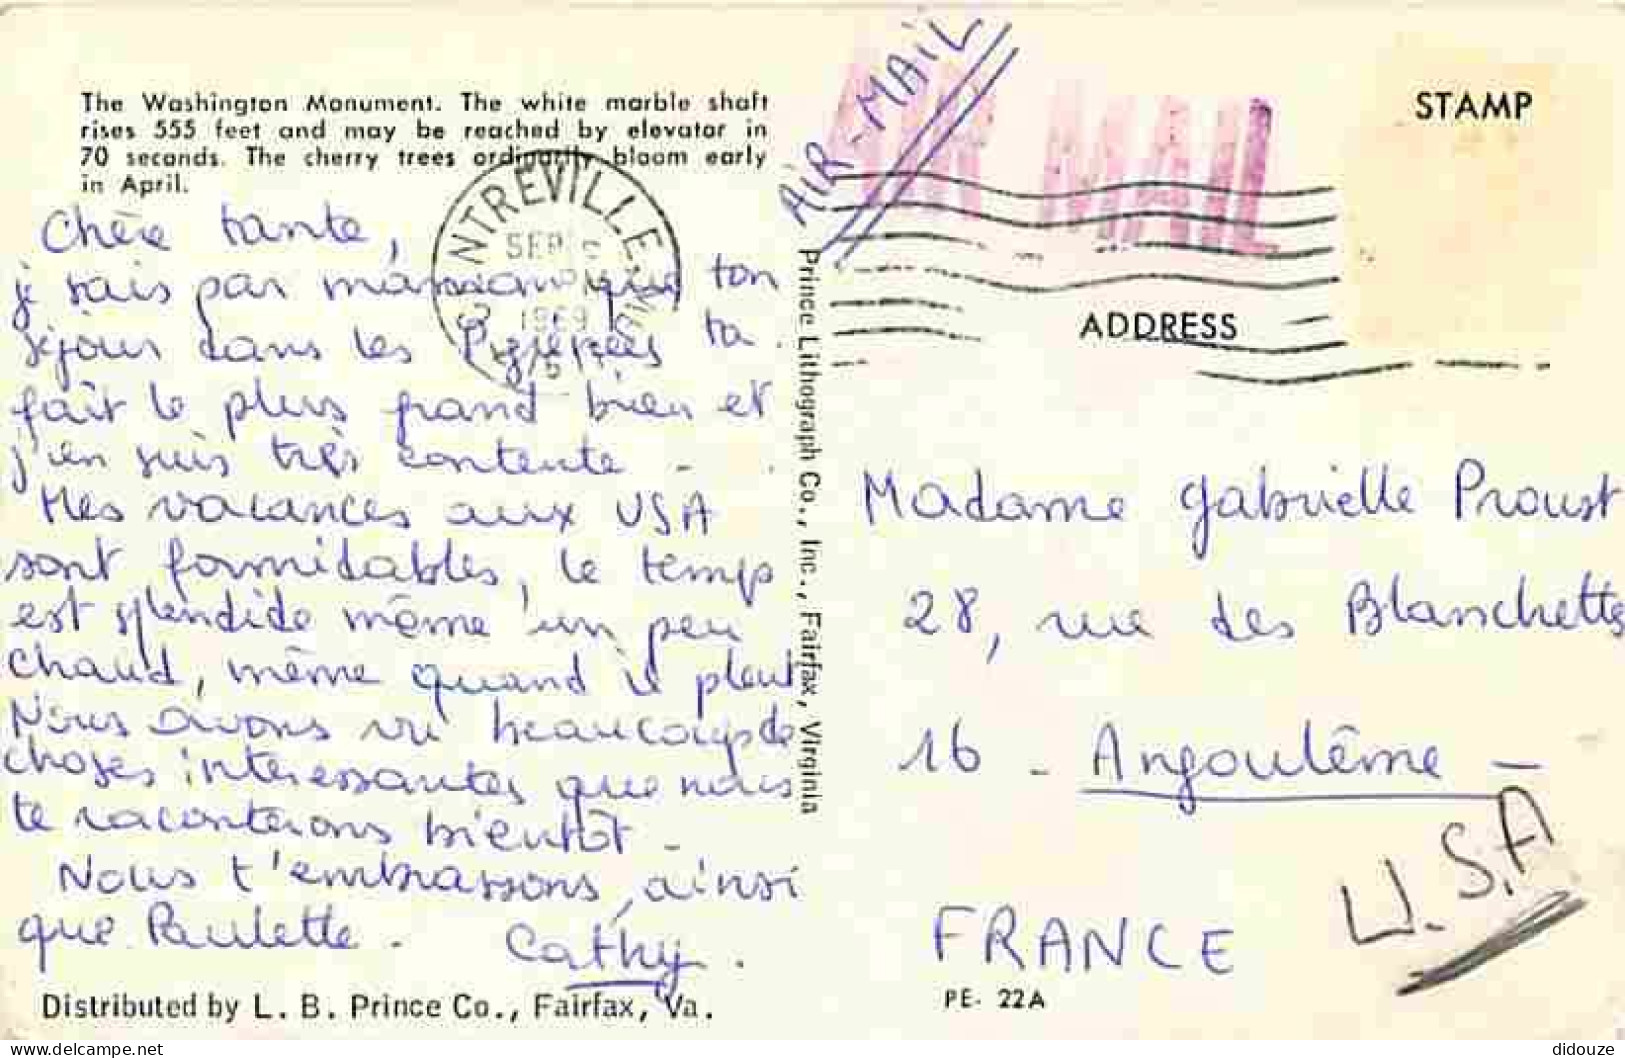 The Washington Monument. The white marble shaft
rises 555 feet and may be reached by elevator in
70 seconds. The cherry trees ordinarily bloom early
in April.
Chère tante,
je sais par maman que ton
séjour dans les Pyrénées t'a
fait le plus grand bien et
j'en suis très contente -
Mes vacances aux USA
sont formidables, le temps
est splendide même un peu
chaud, même quand il pleut
Nous avons vu beaucoup de
choses intéressantes que nous
te raconterons bientôt -
Nous t'embrassons, ainsi
que Paulette. Cathy.
Distributed by L. B. Prince Co., Fairfax, Va.
CENTREVILLE
SEP
PM
1969
Prince Lithograph Co., Inc., Fairfax, Virginia
AIR-MAIL
AIR MAIL
STAMP
ADDRESS
Madame Gabrielle Proust
28, rue des Blanchettes
16 - Angoulême -
U.S.A
FRANCE
PE- 22A
delcampe.net
didouze